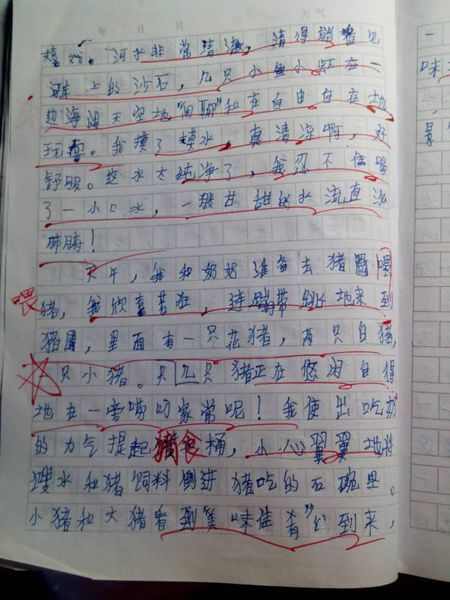 年 月 日 天气
嬉戏。河水非常清澈，清得能看见
床上的沙石，几只小鱼小虾在一
边海阔天空地“闲聊”和在自由自在地
玩着。我摸了摸水，真清凉啊，好
舒服。这水太纯净了，我忍不住喝
了一小口水，一股甘甜的水流直沁
肺腑！
下午，我和奶奶准备去猪圈喂
猪，我欣喜若狂，连蹦带跳地来到
猪圈，里面有一只花猪，两只白猪，
只小猪。只见几只猪正在悠闲自得
地在一旁唠叨家常呢！我使出吃奶
的力气提起猪食桶，小心翼翼地将
馊水和猪饲料倒进猪吃的石碗里。
小猪和大猪看到“美味佳肴”的到来，
一
味